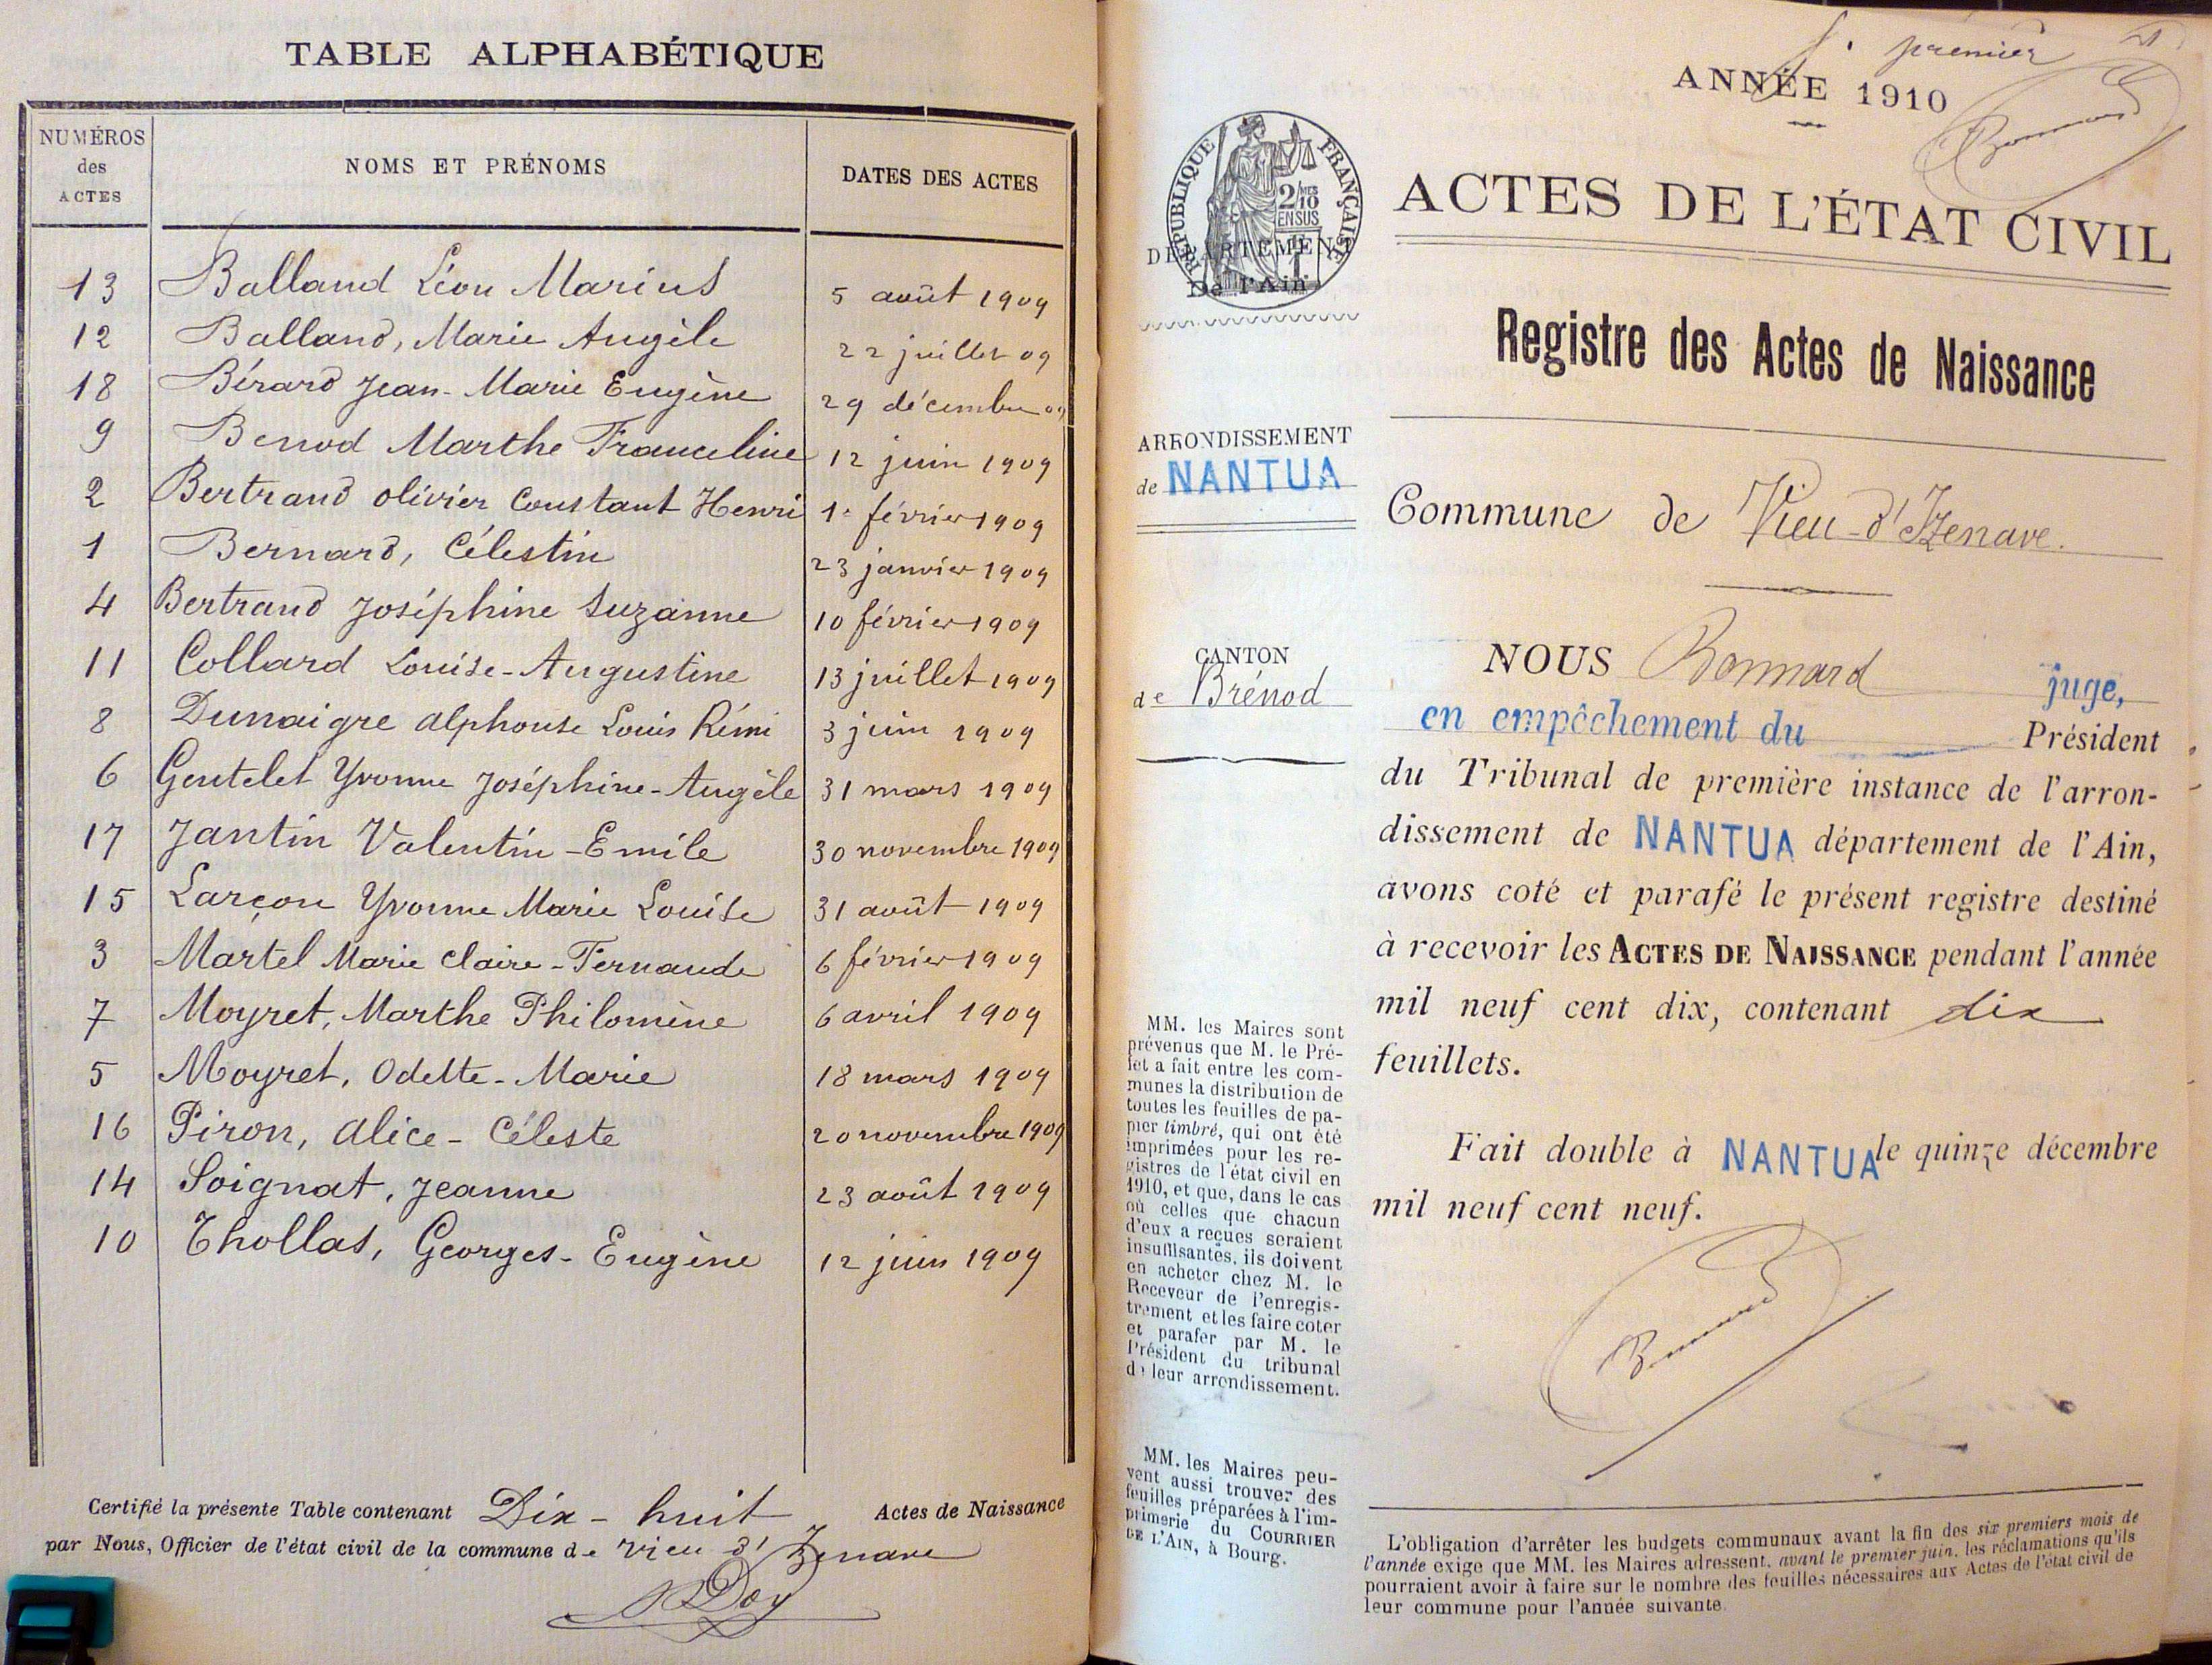 TABLE ALPHABÉTIQUE
NUMÉROS des ACTES NOMS ET PRÉNOMS DATES DES ACTES
13 Balland Léon Marius 5 août 1909
12 Balland, Marie Angèle 22 juillet 09
18 Bérard Jean-Marie Eugène 29 décembre 09
9 Benod Marthe Franceline 12 juin 1909
2 Bertrand olivier Constant Henri 1er février 1909
1 Bernard, Célestin 23 janvier 1909
4 Bertrand Joséphine Suzanne 10 février 1909
11 Collard Louise-Augustine 13 juillet 1909
8 Dunaigre alphonse Louis Rémi 3 juin 1909
6 Gentelet Yvonne Joséphine-Angèle 31 mars 1909
17 Jantin Valentin-Emile 30 novembre 1909
15 Larçon Yvonne Marie Louise 31 août 1909
3 Martel Marie Claire-Fernande 6 février 1909
7 Moyret, Marthe Philomène 6 avril 1909
5 Moyret, Odette-Marie 18 mars 1909
16 Piron, Alice-Céleste 20 novembre 1909
14 Soignat, Jeanne 23 août 1909
10 Thollas, Georges-Eugène 12 juin 1909
Certifié la présente Table contenant Dix-huit Actes de Naissance
par Nous, Officier de l'état civil de la commune de Vieu d'Izenave
premier
ANNÉE 1910
RÉPUBLIQUE FRANÇAISE
2/10 MES
EN SUS
DÉPARTEMENT
De l'Ain
ACTES DE L'ÉTAT CIVIL
Registre des Actes de Naissance
ARRONDISSEMENT
de NANTUA
Commune de Vieu-d'Izenave.
CANTON
de Brénod
NOUS Bonnard juge,
en empêchement du Président
du Tribunal de première instance de l'arron-
dissement de NANTUA département de l'Ain,
avons coté et parafé le présent registre destiné
à recevoir les ACTES DE NAISSANCE pendant l'année
mil neuf cent dix, contenant dix
feuillets.
Fait double à NANTUA le quinze décembre
mil neuf cent neuf.
MM. les Maires sont
prévenus que M. le Pré-
fet a fait entre les com-
munes la distribution de
toutes les feuilles de pa-
pier timbré, qui ont été
imprimées pour les re-
gistres de l'état civil en
1910, et que, dans le cas
où celles que chacun
d'eux a reçues seraient
insuffisantes, ils doivent
en acheter chez M. le
Receveur de l'enregis-
trement et les faire coter
et parafer par M. le
Président du tribunal
de leur arrondissement.
MM. les Maires peu-
vent aussi trouver des
feuilles préparées à l'im-
primerie du COURRIER
DE L'AIN, à Bourg.
L'obligation d'arrêter les budgets communaux avant la fin des six premiers mois de
l'année exige que MM. les Maires adressent, avant le premier juin, les réclamations qu'ils
pourraient avoir à faire sur le nombre des feuilles nécessaires aux Actes de l'état civil de
leur commune pour l'année suivante.